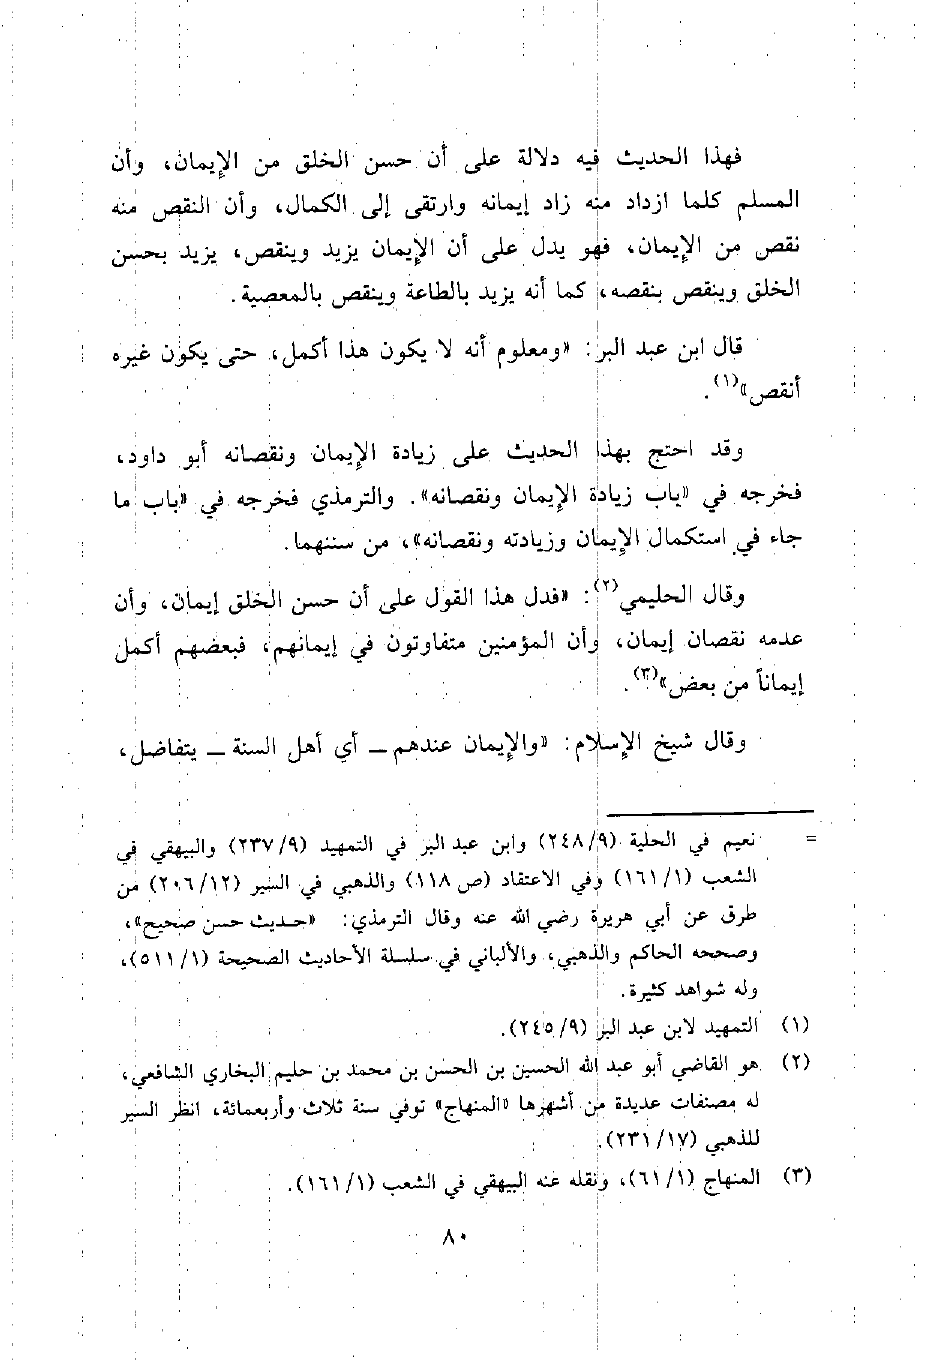 فهذا الحديث فيه دلالة على أن حسن الخلق من الإيمان، وأن
المسلم كلما ازداد منه زاد إيمانه وارتقى إلى الكمال، وأن النقص منه
نقص من الإيمان، فهو يدل على أن الإيمان يزيد وينقص، يزيد بحسن
الخلق وينقص بنقصه، كما أنه يزيد بالطاعة وينقص بالمعصية.
قال ابن عبد البر: «ومعلوم أنه لا يكون هذا أكمل، حتى يكون غيره
أنقص»(١).
وقد احتج بهذا الحديث على زيادة الإيمان ونقصانه أبو داود،
فخرجه في «باب زيادة الإيمان ونقصانه». والترمذي فخرجه في «باب ما
جاء في استكمال الإيمان وزيادته ونقصانه»، من سننهما.
وقال الحليمي(٢): «فدل هذا القول على أن حسن الخلق إيمان، وأن
عدمه نقصان إيمان، وأن المؤمنين متفاوتون في إيمانهم، فبعضهم أكمل
إيماناً من بعض»(٣).
وقال شيخ الإسلام: «والإيمان عندهم ــ أي أهل السنة ــ يتفاضل،
= نعيم في الحلية (٢٤٨/٩) وابن عبد البر في التمهيد (٢٣٧/٩) والبيهقي في
الشعب (١٦١/١) وفي الاعتقاد (ص ١١٨) والذهبي في السير (٢٠٦/١٢) من
طرق عن أبي هريرة رضي الله عنه وقال الترمذي: «حديث حسن صحيح»،
وصححه الحاكم والذهبي، والألباني في سلسلة الأحاديث الصحيحة (٥١١/١)،
وله شواهد كثيرة.
(١) التمهيد لابن عبد البر (٢٤٥/٩).
(٢) هو القاضي أبو عبد الله الحسين بن الحسن بن محمد بن حليم البخاري الشافعي،
له مصنفات عديدة من أشهرها «المنهاج» توفي سنة ثلاث وأربعمائة، انظر السير
للذهبي (٢٣١/١٧).
(٣) المنهاج (٦١/١)، ونقله عنه البيهقي في الشعب (١٦١/١).
٨٠